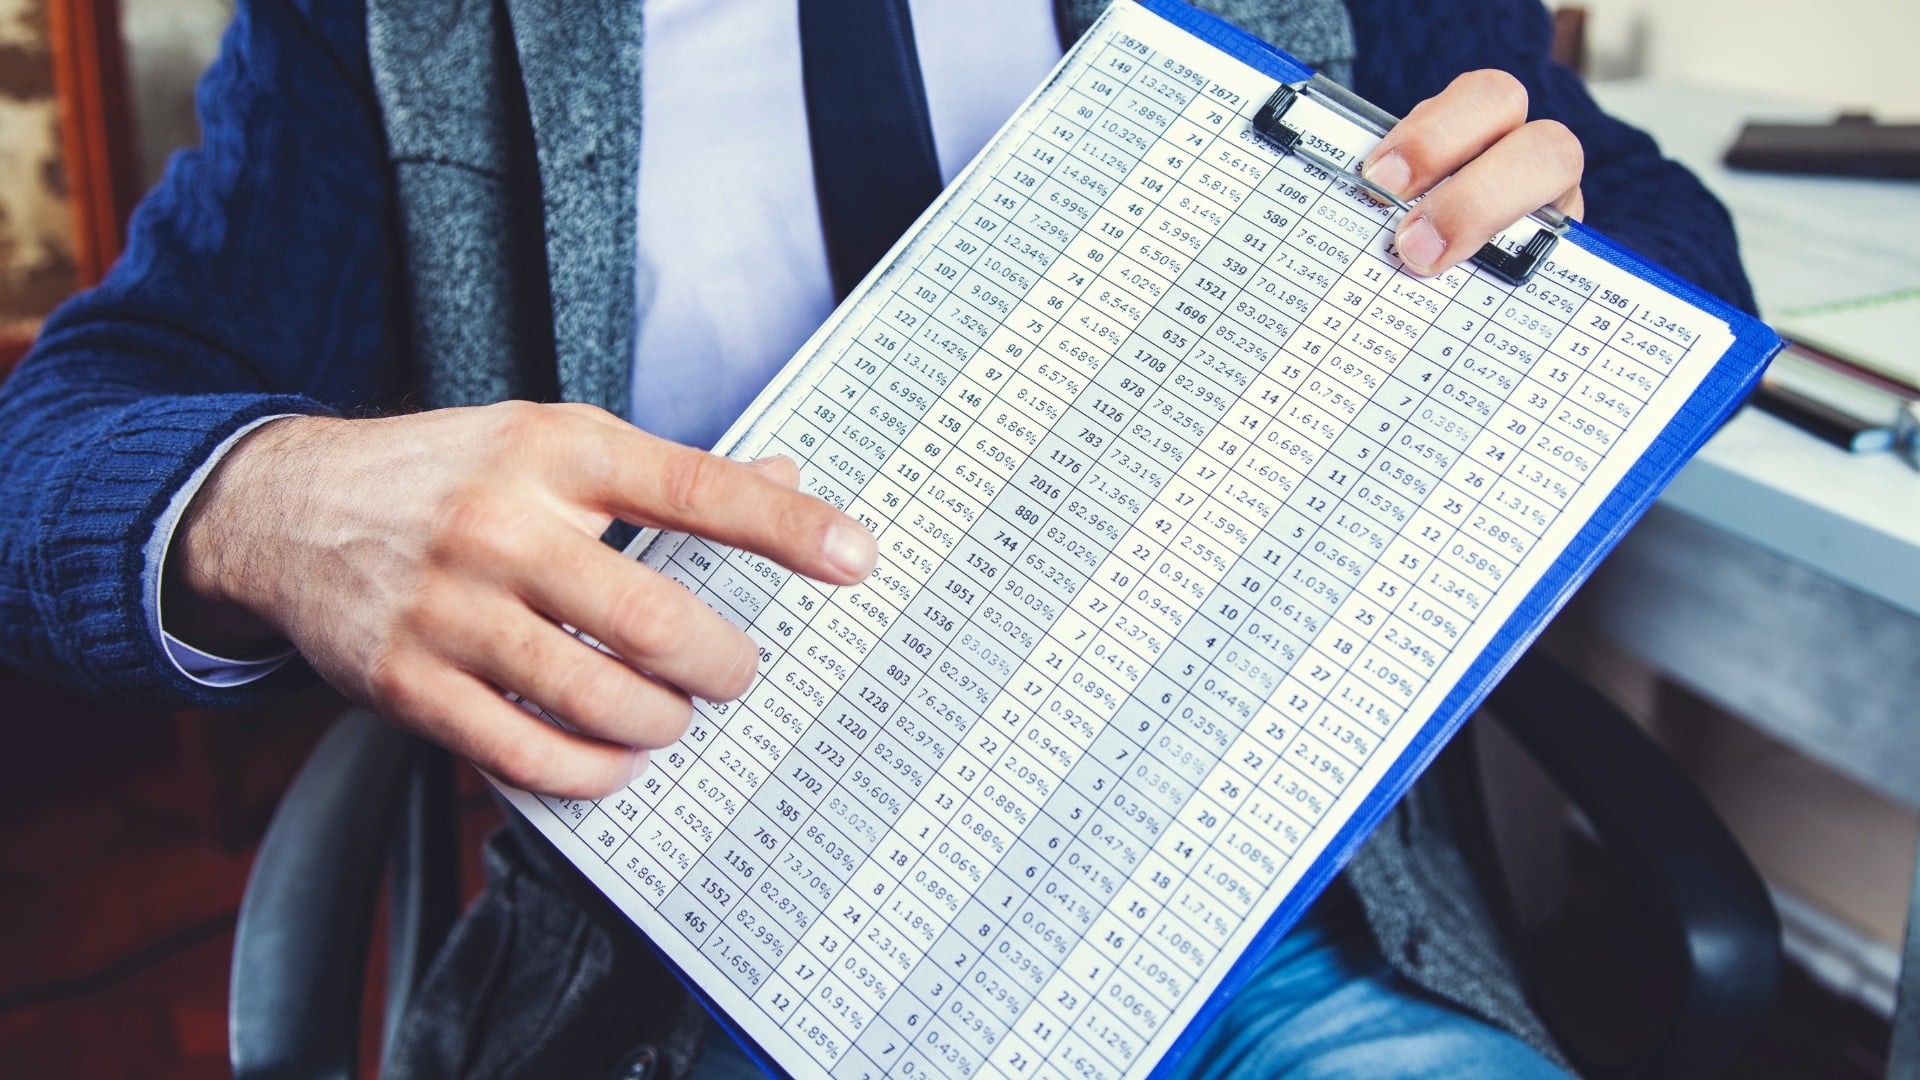 3678 8.39% 2672 35542 0.44% 586 1.34%
149 13.22% 78 6.92% 826 73.29% 0.62% 28 2.48%
104 7.88% 74 5.61% 1096 83.03% 5 0.38% 15 1.14%
80 10.32% 45 5.81% 589 76.00% 11 1.42% 3 0.39% 15 1.94%
142 11.12% 104 8.14% 911 71.34% 38 2.98% 6 0.47% 33 2.58%
114 14.84% 46 5.99% 539 70.18% 12 1.56% 4 0.52% 20 2.60%
128 6.99% 119 6.50% 1521 83.02% 16 0.87% 7 0.38% 24 1.31%
145 7.29% 80 4.02% 1696 85.23% 15 0.75% 9 0.45% 26 1.31%
107 12.34% 74 8.54% 635 73.24% 14 1.61% 5 0.58% 25 2.88%
207 10.06% 86 4.18% 1708 82.99% 14 0.68% 11 0.53% 12 0.58%
102 9.09% 75 6.68% 878 78.25% 18 1.60% 12 1.07% 15 1.34%
103 7.52% 90 6.57% 1126 82.19% 17 1.24% 5 0.36% 15 1.09%
122 11.42% 87 8.15% 783 73.31% 17 1.59% 11 1.03% 25 2.34%
216 13.11% 146 8.86% 1176 71.36% 42 2.55% 10 0.61% 18 1.09%
170 6.99% 158 6.50% 2016 82.96% 22 0.91% 10 0.41% 27 1.11%
74 6.98% 69 6.51% 880 83.02% 10 0.94% 4 0.38% 12 1.13%
183 16.07% 119 10.45% 744 65.32% 27 2.37% 5 0.44% 25 2.19%
68 4.01% 56 3.30% 1526 90.03% 7 0.41% 6 0.35% 22 1.30%
7.02% 153 6.51% 1951 83.02% 21 0.89% 9 0.38% 26 1.11%
6.49% 1536 83.03% 17 0.92% 7 0.38% 20 1.08%
6.48% 1062 82.97% 12 0.94% 5 0.39% 14 1.09%
11.68% 56 5.32% 803 76.26% 22 2.09% 5 0.47% 18 1.71%
104 7.03% 96 6.49% 1228 82.97% 13 0.88% 6 0.41% 16 1.08%
96 6.53% 1220 82.99% 13 0.88% 6 0.41% 16 1.09%
0.06% 1723 99.60% 1 0.06% 1 0.06% 1 0.06%
6.49% 1702 83.02% 18 0.88% 8 0.39% 23 1.12%
15 2.21% 585 86.03% 8 1.18% 2 0.29% 11 1.62%
63 6.07% 765 73.70% 24 2.31% 3 0.29% 21
91 6.52% 1156 82.87% 13 0.93% 6 0.43%
131 7.01% 1552 82.99% 17 0.91% 7
38 5.86% 465 71.65% 12 1.85%